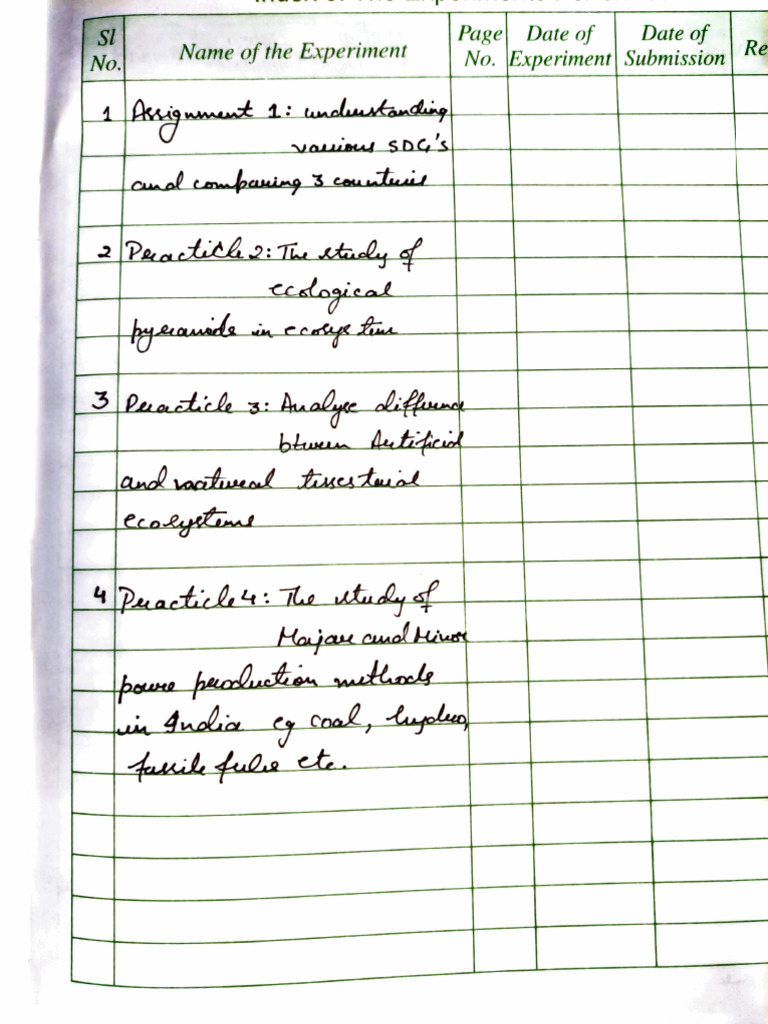 Sl No. Name of the Experiment Page No. Date of Experiment Date of Submission Re
1 Assignment 1: understanding
various SDG's
and comparing 3 countries
2 Practicle 2: The study of
ecological
pyramids in ecosystem
3 Practicle 3: Analyse difference
btween Artificial
and natural terrestrial
ecosystems
4 Practicle 4: The study of
Major and Minor
power production methods
in India eg coal, hydro,
etc.